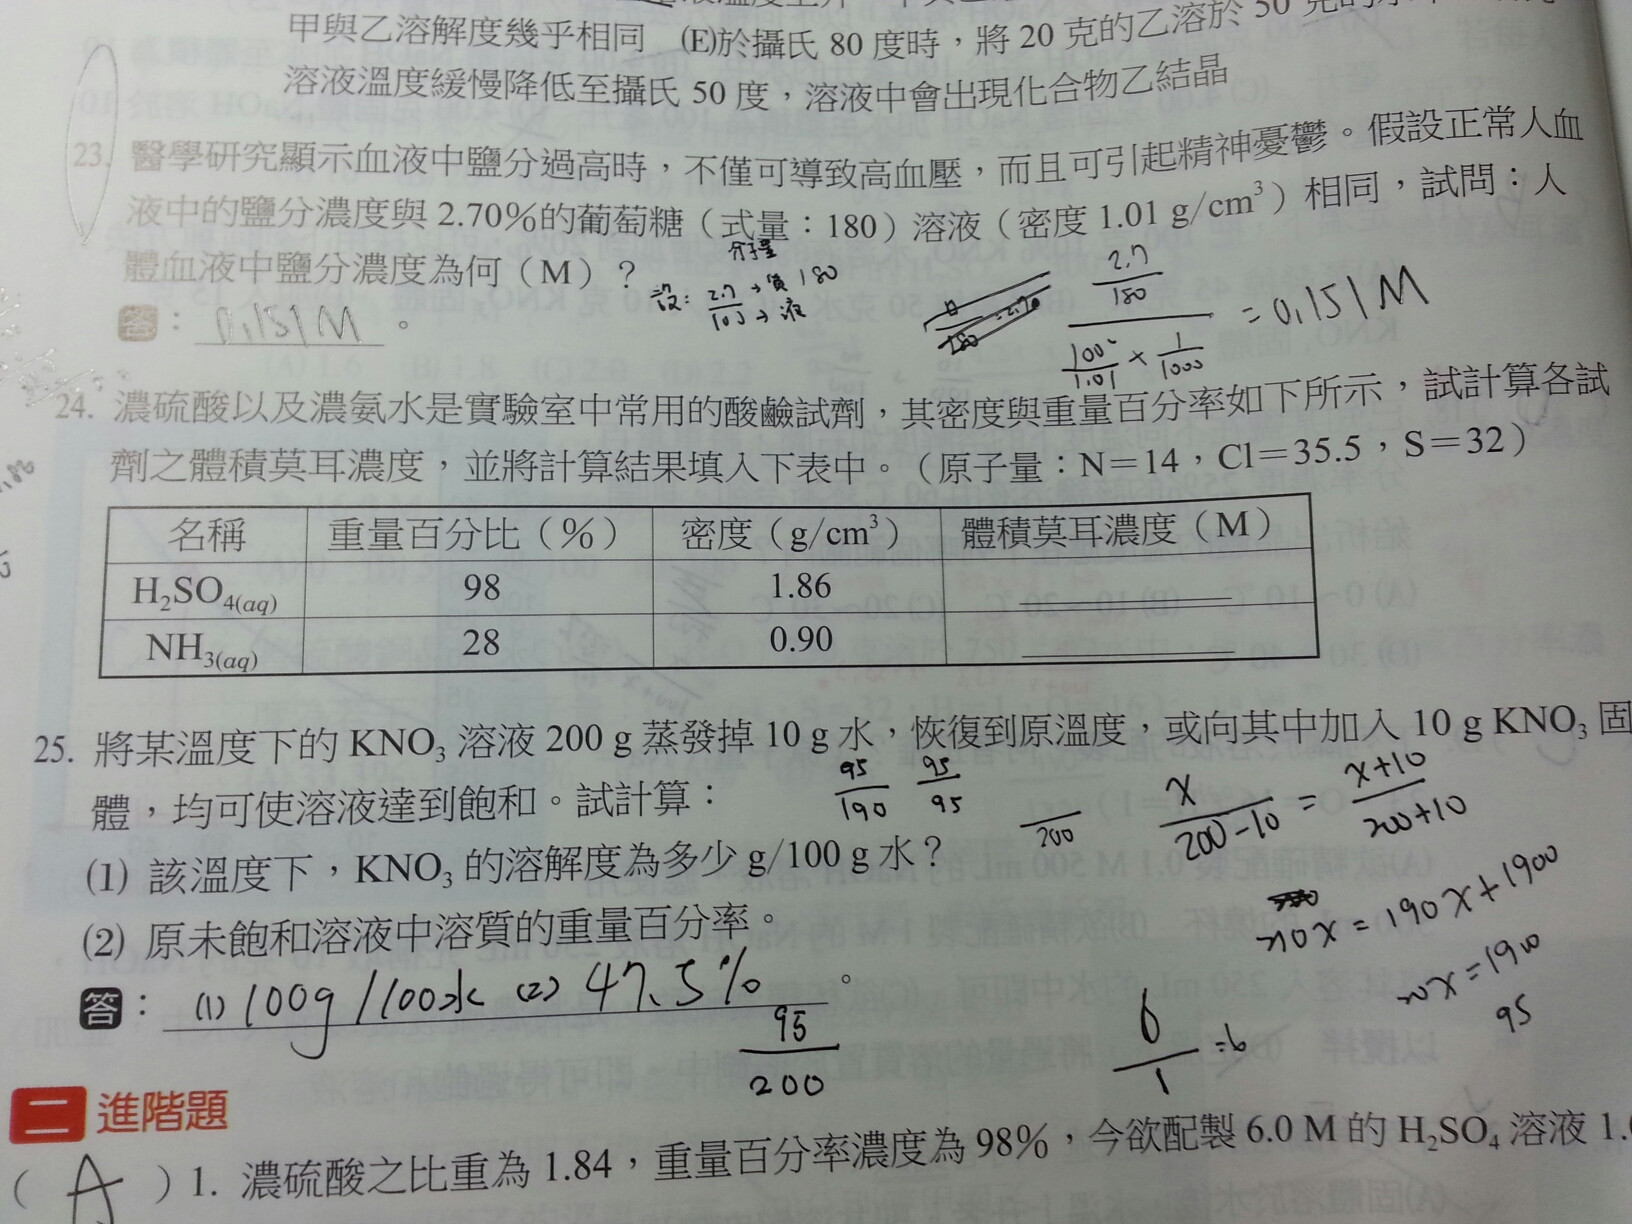 甲與乙溶解度幾乎相同 (E)於攝氏 80 度時，將 20 克的乙溶於 50 克的
溶液溫度緩慢降低至攝氏 50 度，溶液中會出現化合物乙結晶
23. 醫學研究顯示血液中鹽分過高時，不僅可導致高血壓，而且可引起精神憂鬱。假設正常人血
液中的鹽分濃度與 2.70%的葡萄糖（式量：180）溶液（密度 1.01 g/cm³）相同，試問：人
體血液中鹽分濃度為何（M）？
分子量
設： 2.7 → 質 180
→ 液
2.7
180
1.01 × 1/1000
= 0.151M
答： 0.151M 。
24. 濃硫酸以及濃氨水是實驗室中常用的酸鹼試劑，其密度與重量百分率如下所示，試計算各試
劑之體積莫耳濃度，並將計算結果填入下表中。（原子量：N＝14，Cl＝35.5，S＝32）
名稱 重量百分比（%） 密度（g/cm³） 體積莫耳濃度（M）
H₂SO₄(aq) 98 1.86
NH₃(aq) 28 0.90
25. 將某溫度下的 KNO₃ 溶液 200 g 蒸發掉 10 g 水，恢復到原溫度，或向其中加入 10 g KNO₃ 固
體，均可使溶液達到飽和。試計算：
95/190 95/95
200
x/(200-10) = (x+10)/(200+10)
(1) 該溫度下，KNO₃ 的溶解度為多少 g/100 g 水？
210x = 190x+1900
(2) 原未飽和溶液中溶質的重量百分率。
20x = 1900
95
答： (1) 100g/100水 (2) 47.5% 。
95
200
6/1 = 6
二 進階題
( A ) 1. 濃硫酸之比重為 1.84，重量百分率濃度為 98%，今欲配製 6.0 M 的 H₂SO₄ 溶液 1.